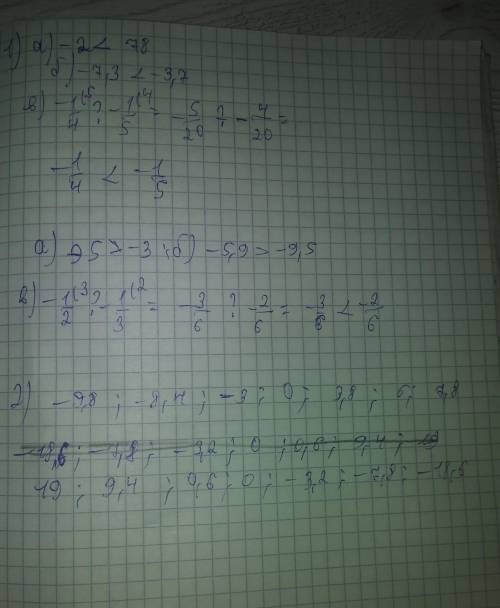 1) а) -2 < 78
б) -7,3 < -3,7
в) -1/4 (5 ? -1/5 (4 = -5/20 ? -4/20 =
-1/4 < -1/5
а) 95 > -3 ; б) -5,9 > -9,5
в) -1/2 (3 ? -1/3 (2 = -3/6 ? -2/6 = -3/6 < -2/6
2) -9,8 ; -8,4 ; -3 ; 0 ; 3,8 ; 5 ; 7,8
-18,6 ; -7,8 ; -3,2 ; 0 ; 0,6 ; 9,4 ; 19
19 ; 9,4 ; 0,6 ; 0 ; -3,2 ; -7,8 ; -18,6